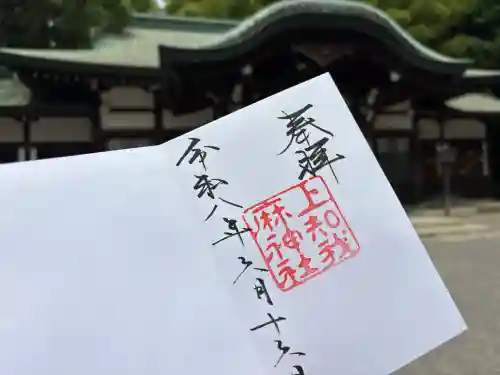 奉拝
上知我
麻神社
令和八年六月十六日